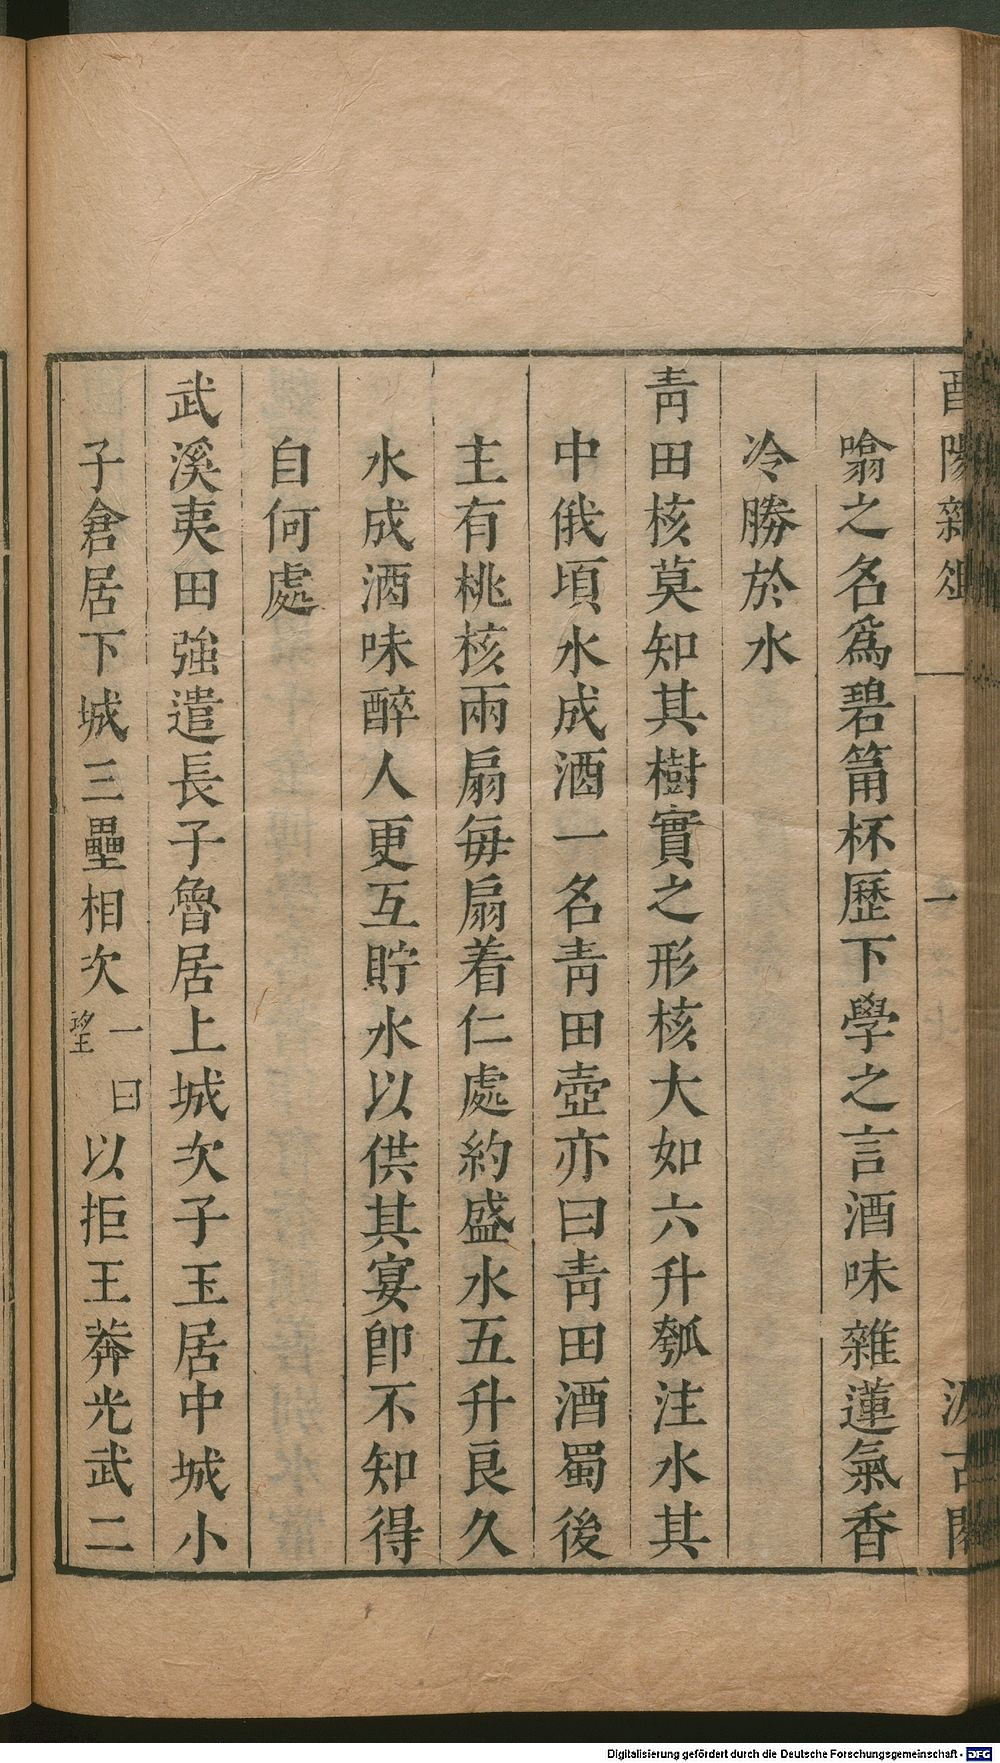 酉陽雜俎 一 汲古閣
噏之名爲碧筩杯歷下學之言酒味雜蓮氣香
冷勝於水
靑田核莫知其樹實之形核大如六升瓠注水其
中俄頃水成酒一名靑田壺亦曰靑田酒蜀後
主有桃核兩扇每扇着仁處約盛水五升良久
水成酒味醉人更互貯水以供其宴卽不知得
自何處
武溪夷田強遣長子魯居上城次子玉居中城小
子倉居下城三壘相次一曰望以拒王莽光武二
Digitalisierung gefördert durch die Deutsche Forschungsgemeinschaft - DFG